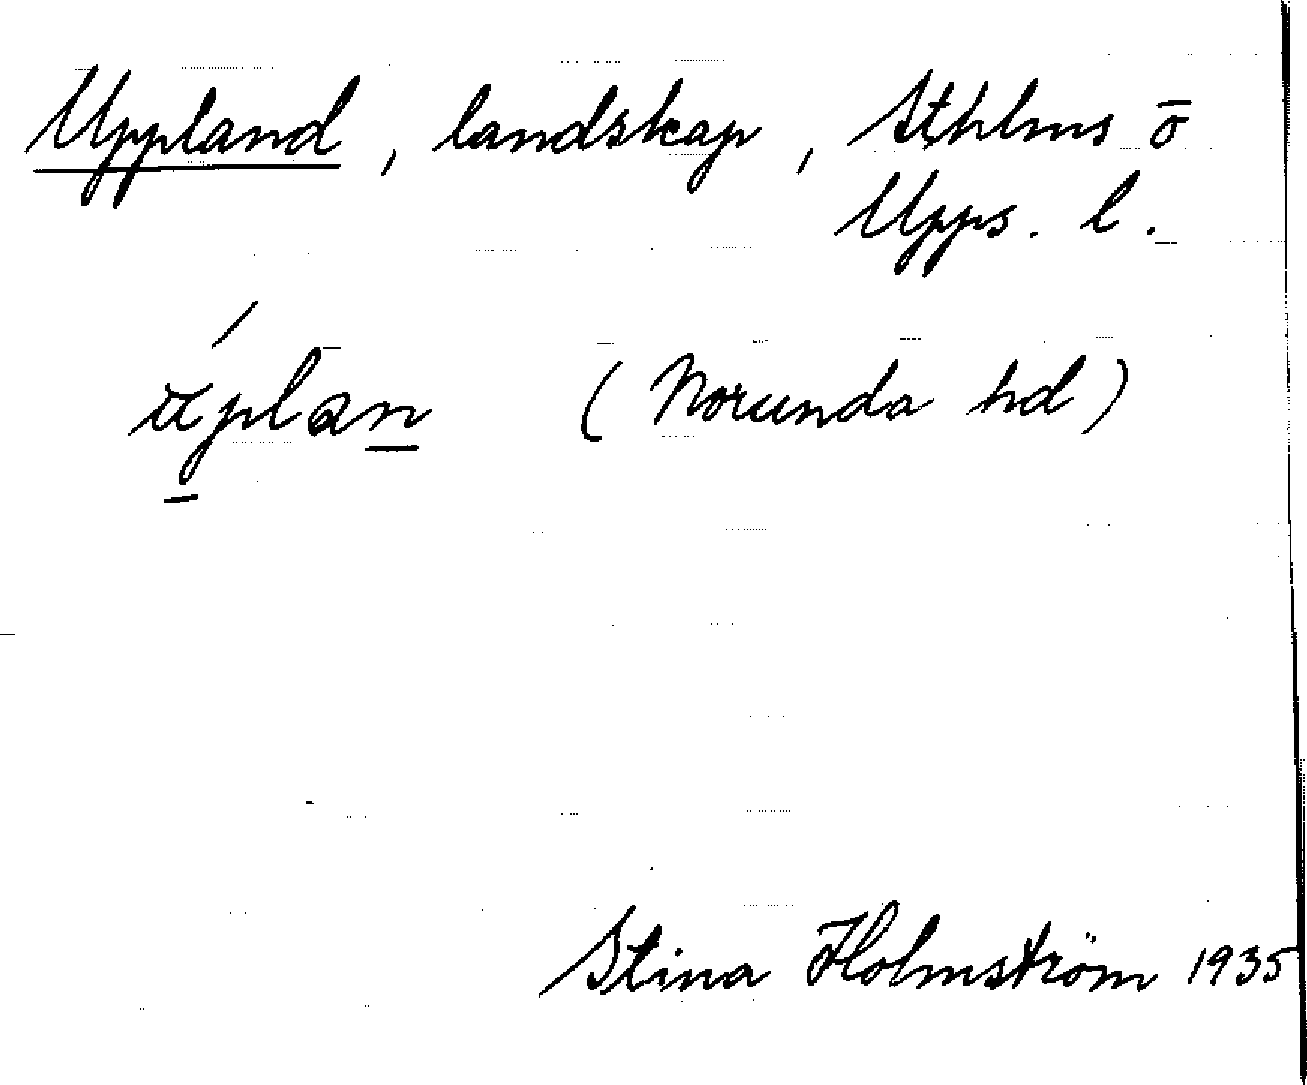 Uppland, landskap, Sthlms o
Upps. l.
úplan (Norunda hd)
Stina Holmström 1935